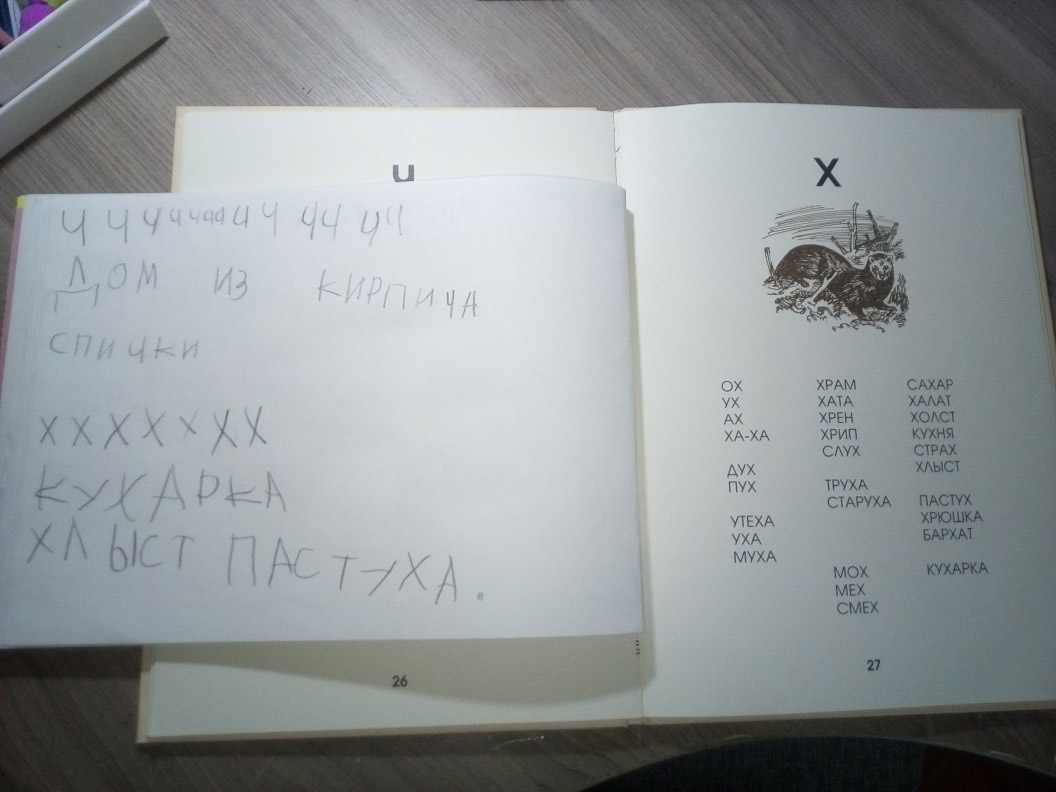 Ч
Ч Ч Ч Ч Ч Ч Ч Ч Ч Ч Ч Ч Ч
ДОМ ИЗ КИРПИЧА
СПИЧКИ
Х Х Х Х Х Х Х
КУХАРКА
ХЛЫСТ ПАСТУХА.
26
Х
ОХ ХРАМ САХАР
УХ ХАТА ХАЛАТ
АХ ХРЕН ХОЛСТ
ХА-ХА ХРИП КУХНЯ
СЛУХ СТРАХ
ДУХ ХЛЫСТ
ПУХ ТРУХА
СТАРУХА ПАСТУХ
УТЕХА ХРЮШКА
УХА БАРХАТ
МУХА
МОХ КУХАРКА
МЕХ
СМЕХ
27